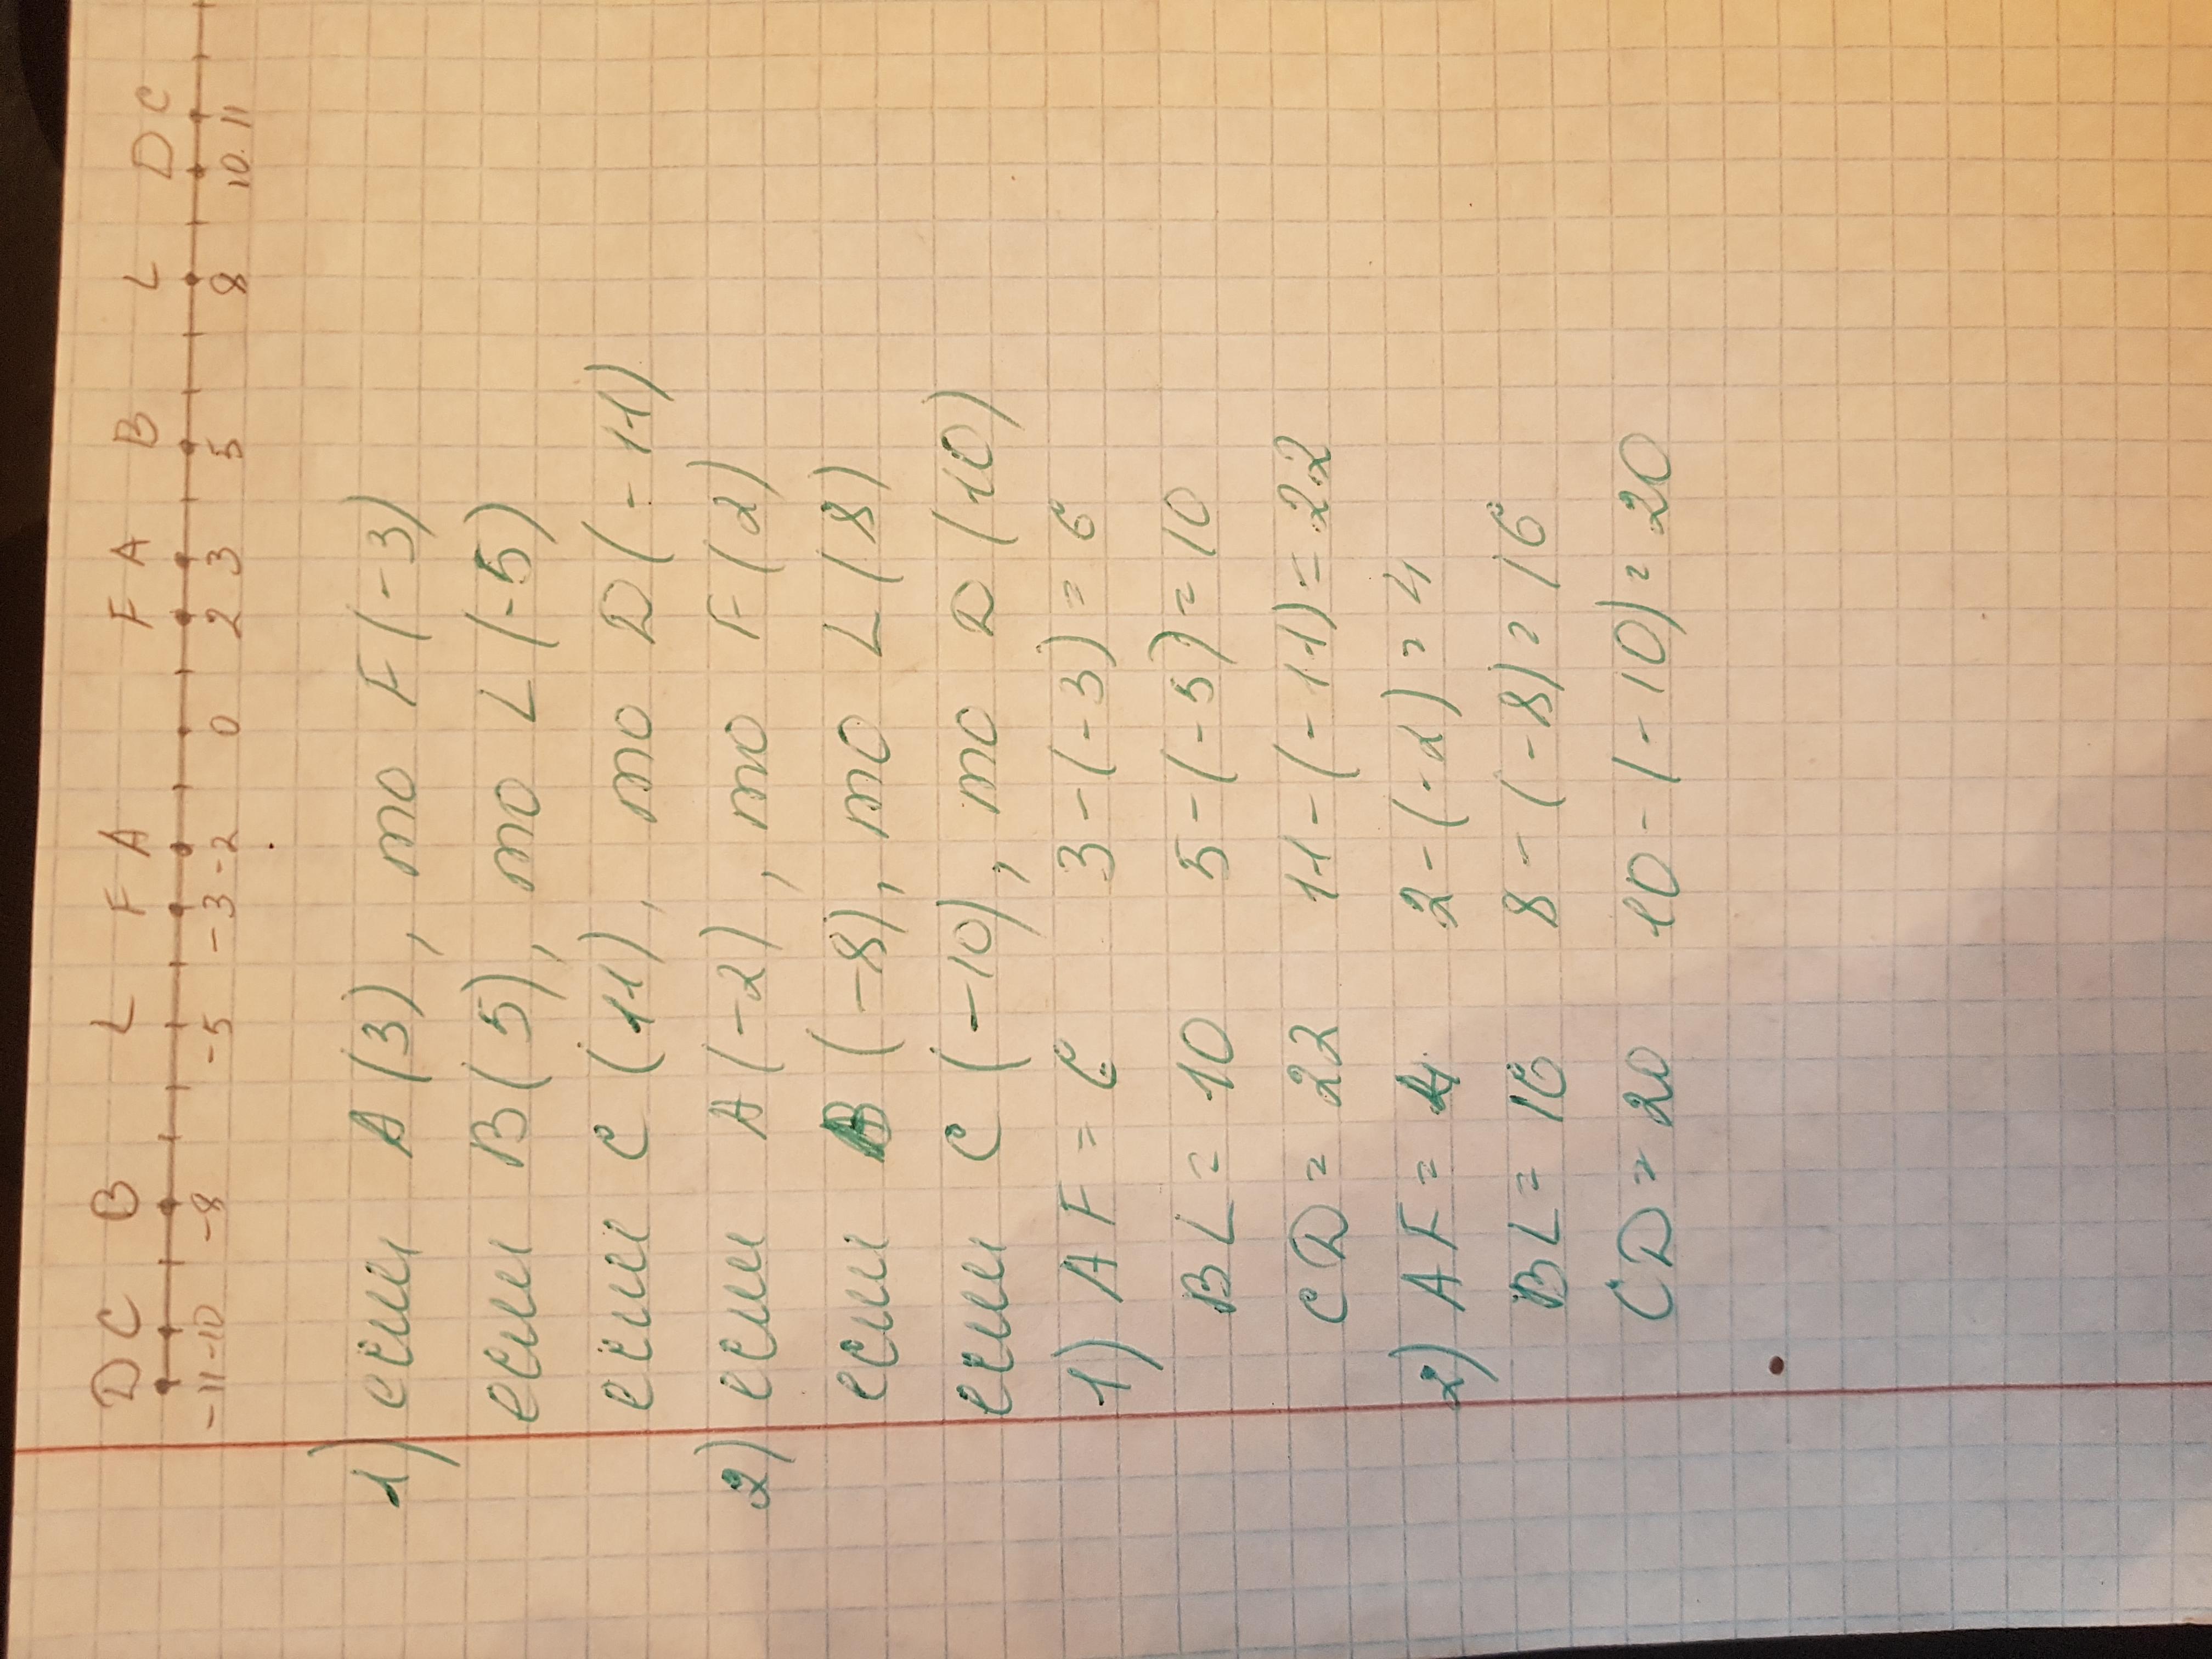 D C B L F A F A B L D C
-11 -10 -8 -5 -3 -2 0 2 3 5 8 10 11
1) если A (3), то F (-3)
если B (5), то L (-5)
если C (11), то D (-11)
2) если A (-2), то F (2)
если B (-8), то L (8)
если C (-10), то D (10)
1) AF = 6 3 - (-3) = 6
BL = 10 5 - (-5) = 10
CD = 22 11 - (-11) = 22
2) AF = 4 2 - (-2) = 4
BL = 16 8 - (-8) = 16
CD = 20 10 - (-10) = 20